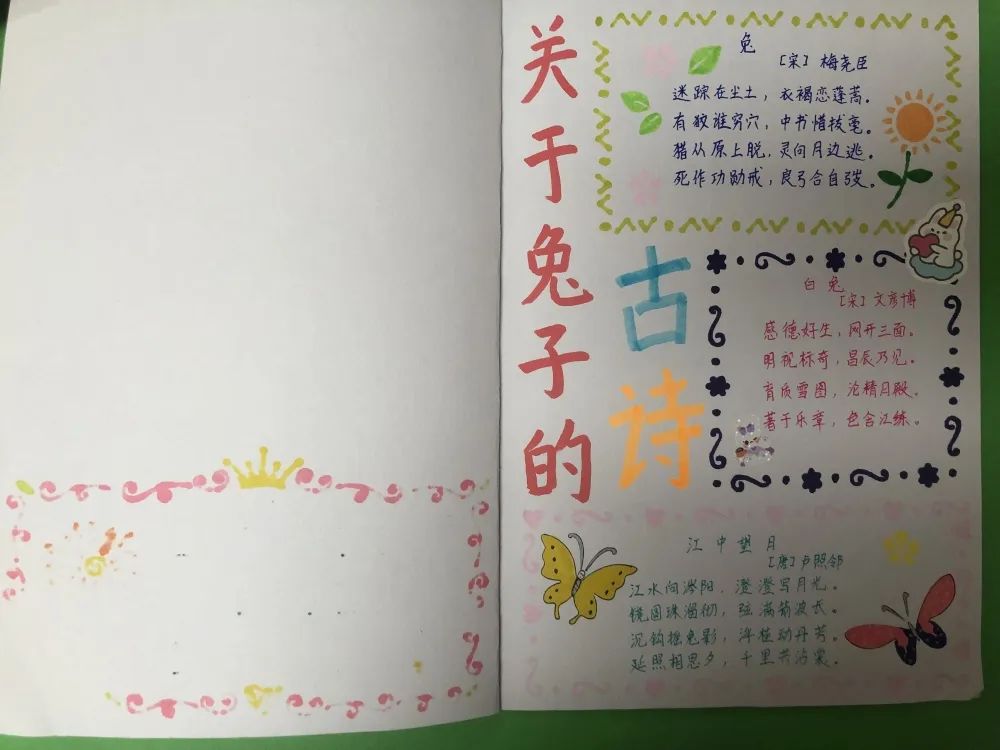 关于兔子的
古诗
兔
[宋] 梅尧臣
迷踪在尘土，衣褐恋蓬蒿。
有狡谁穷穴，中书惜拔毫。
猎从原上脱，灵向月边逃。
死作功勋戒，良弓合自弢。
白兔
[宋] 文彦博
感德好生，网开三面。
明视标奇，昌辰乃见。
育质雪图，沦精月殿。
著于乐章，色含江练。
江中望月
[唐] 卢照邻
江水向涔阳，澄澄写月光。
镜圆珠溜彻，弦满箭波长。
沉钩摇兔影，浮桂动丹芳。
延照相思夕，千里共沾裳。